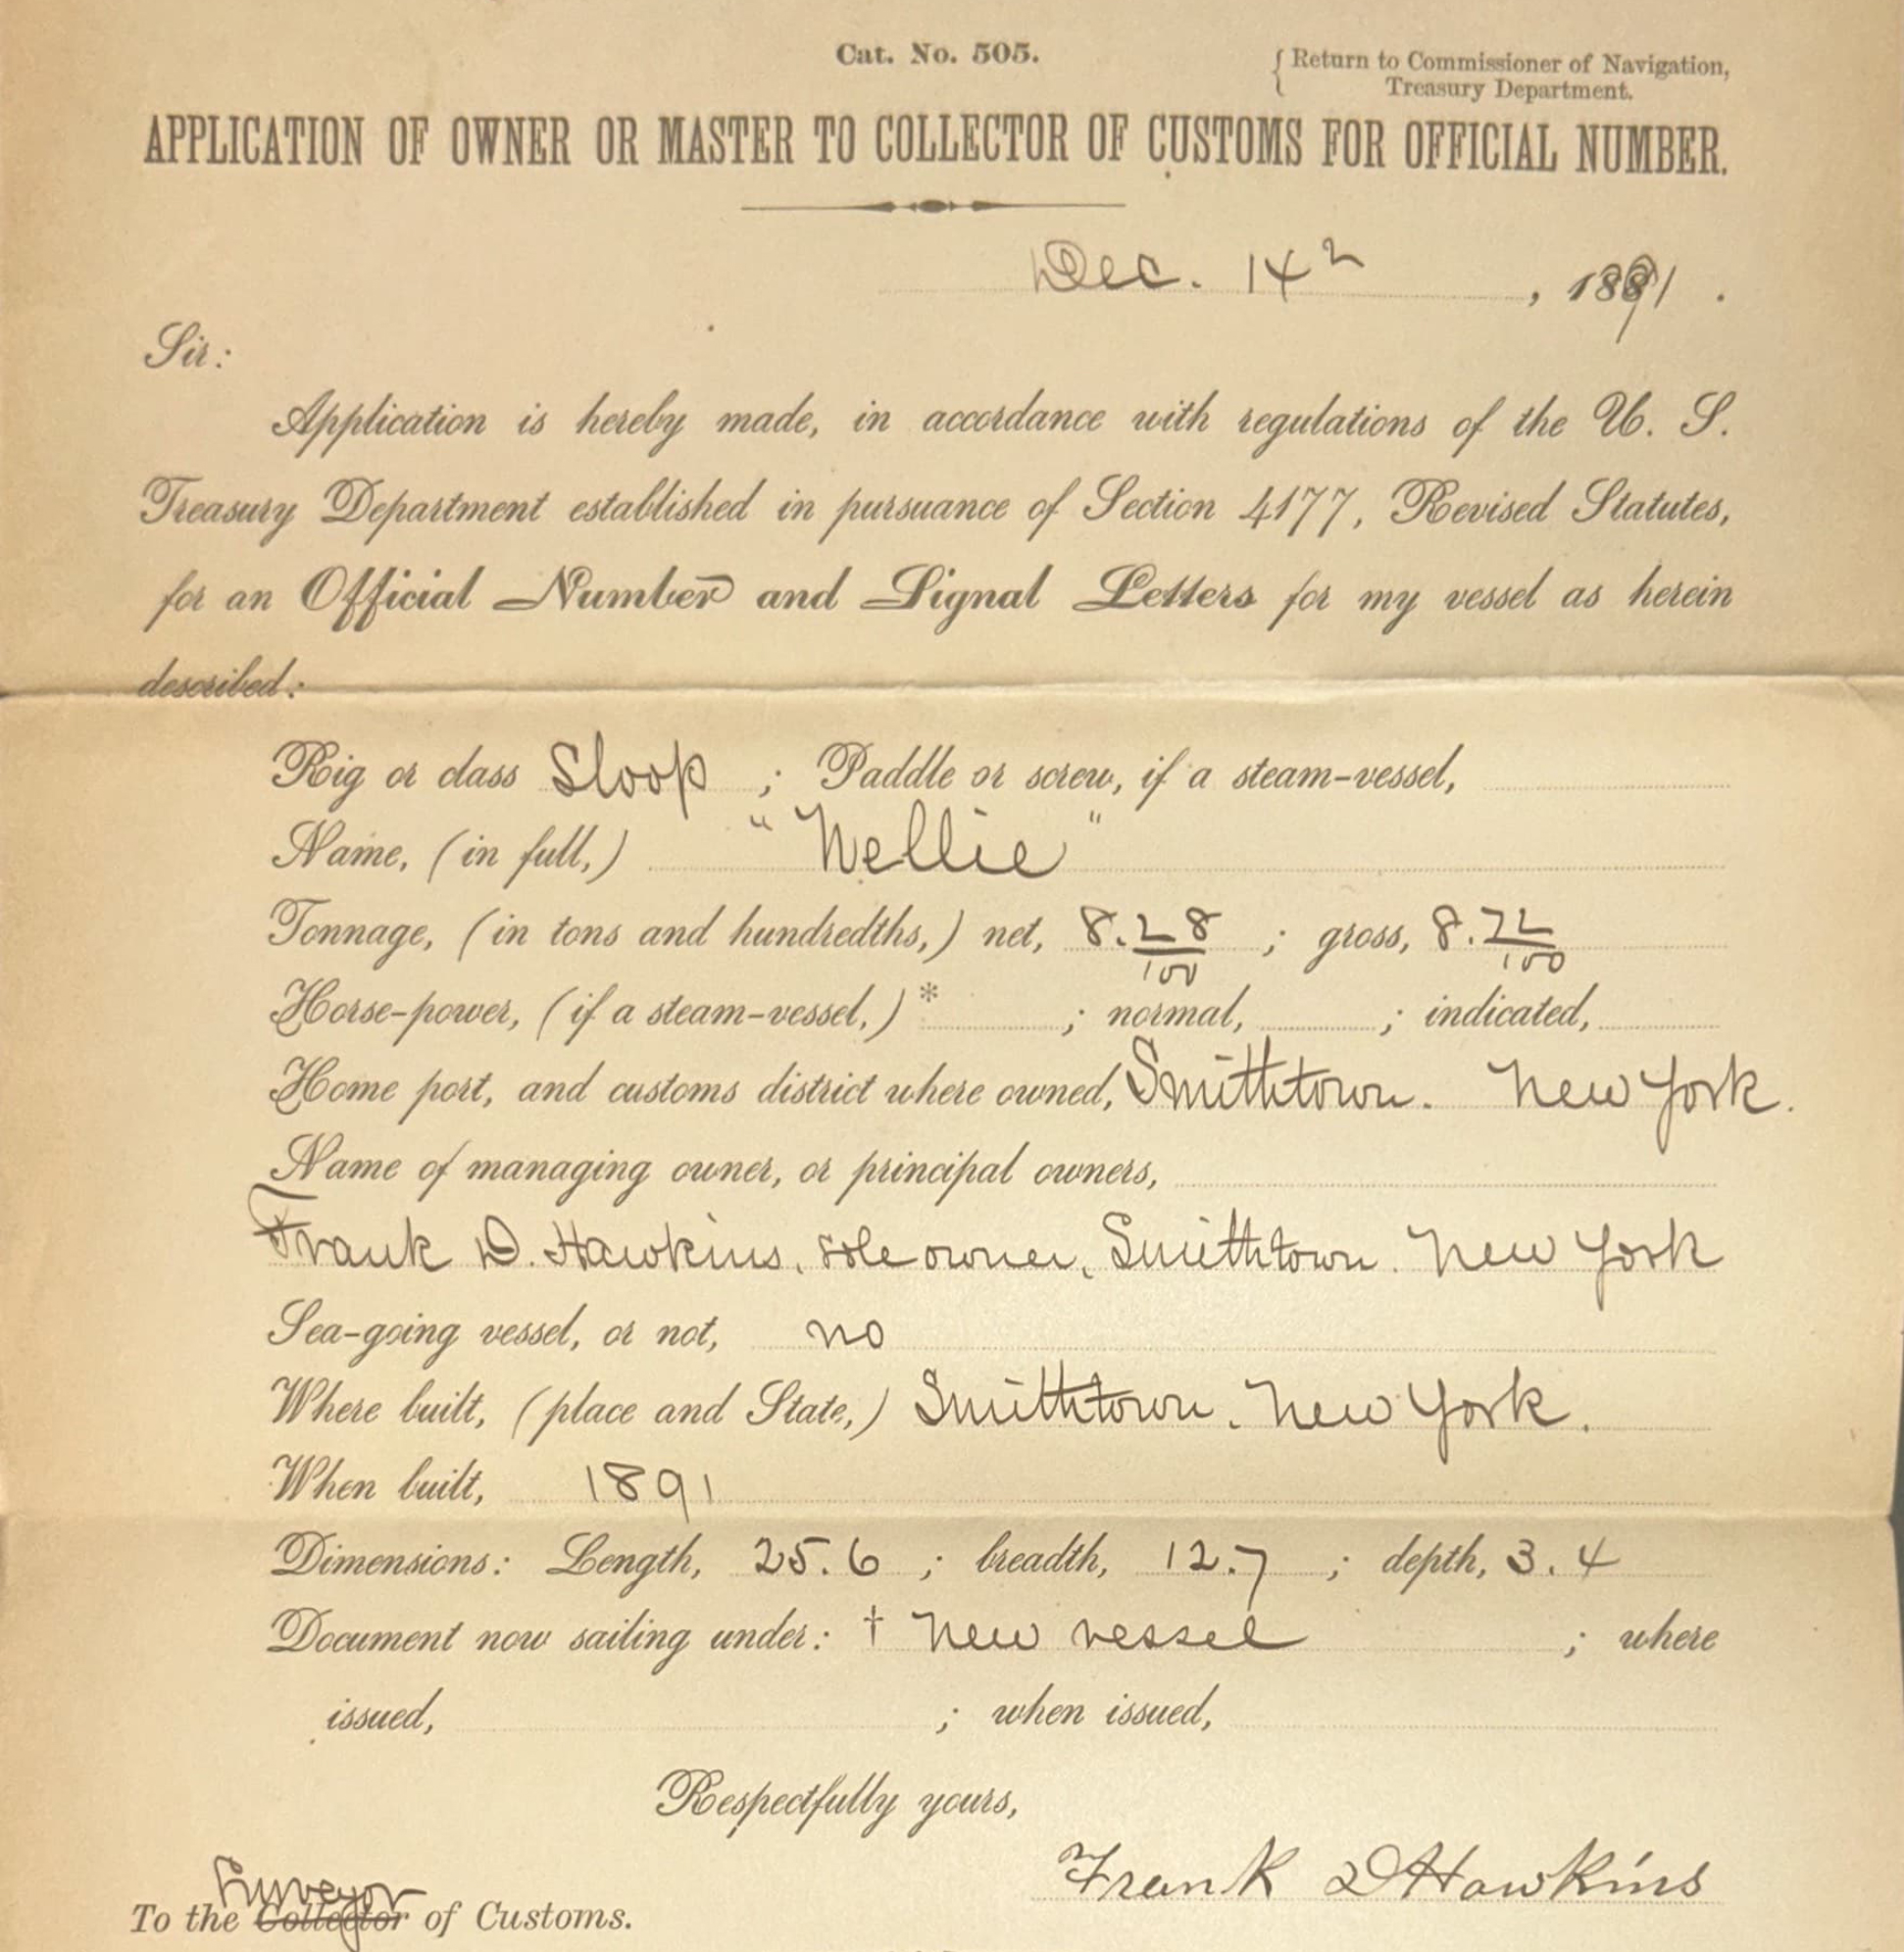 Cat. No. 505.
{ Return to Commissioner of Navigation,
Treasury Department.
APPLICATION OF OWNER OR MASTER TO COLLECTOR OF CUSTOMS FOR OFFICIAL NUMBER.
Dec. 14th, 1891.
Sir:
Application is hereby made, in accordance with regulations of the U. S.
Treasury Department established in pursuance of Section 4177, Revised Statutes,
for an Official Number and Signal Letters for my vessel as herein
described:
Rig or class Sloop ; Paddle or screw, if a steam-vessel,
Name, (in full,) "Nellie"
Tonnage, (in tons and hundredths,) net, 8.28/100 ; gross, 8.72/100
Horse-power, (if a steam-vessel,)* ; normal, ; indicated,
Home port, and customs district where owned, Smithtown. New York.
Name of managing owner, or principal owners,
Frank D. Hawkins, sole owner, Smithtown. New York
Sea-going vessel, or not, no
Where built, (place and State,) Smithtown. New York.
When built, 1891
Dimensions: Length, 25.6 ; breadth, 12.7 ; depth, 3.4
Document now sailing under: † New vessel ; where
issued, ; when issued,
Respectfully yours,
Frank D Hawkins
Surveyor
To the Collector of Customs.